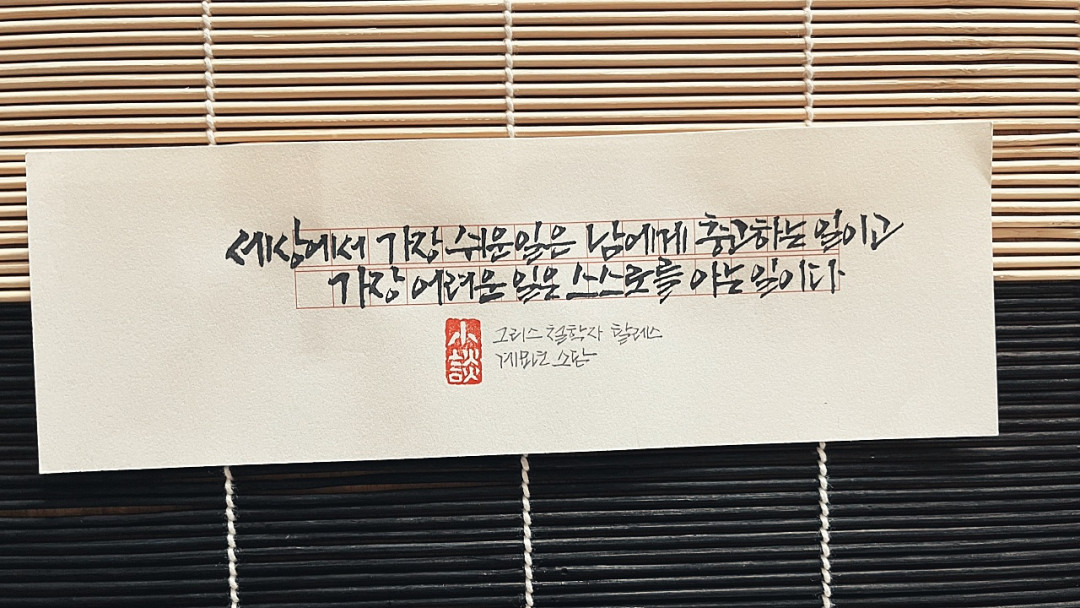 세상에서 가장 쉬운일은 남에게 충고하는 일이고
가장 어려운 일은 스스로를 아는 일이다
小談
그리스 철학자 탈레스
계묘년 소담